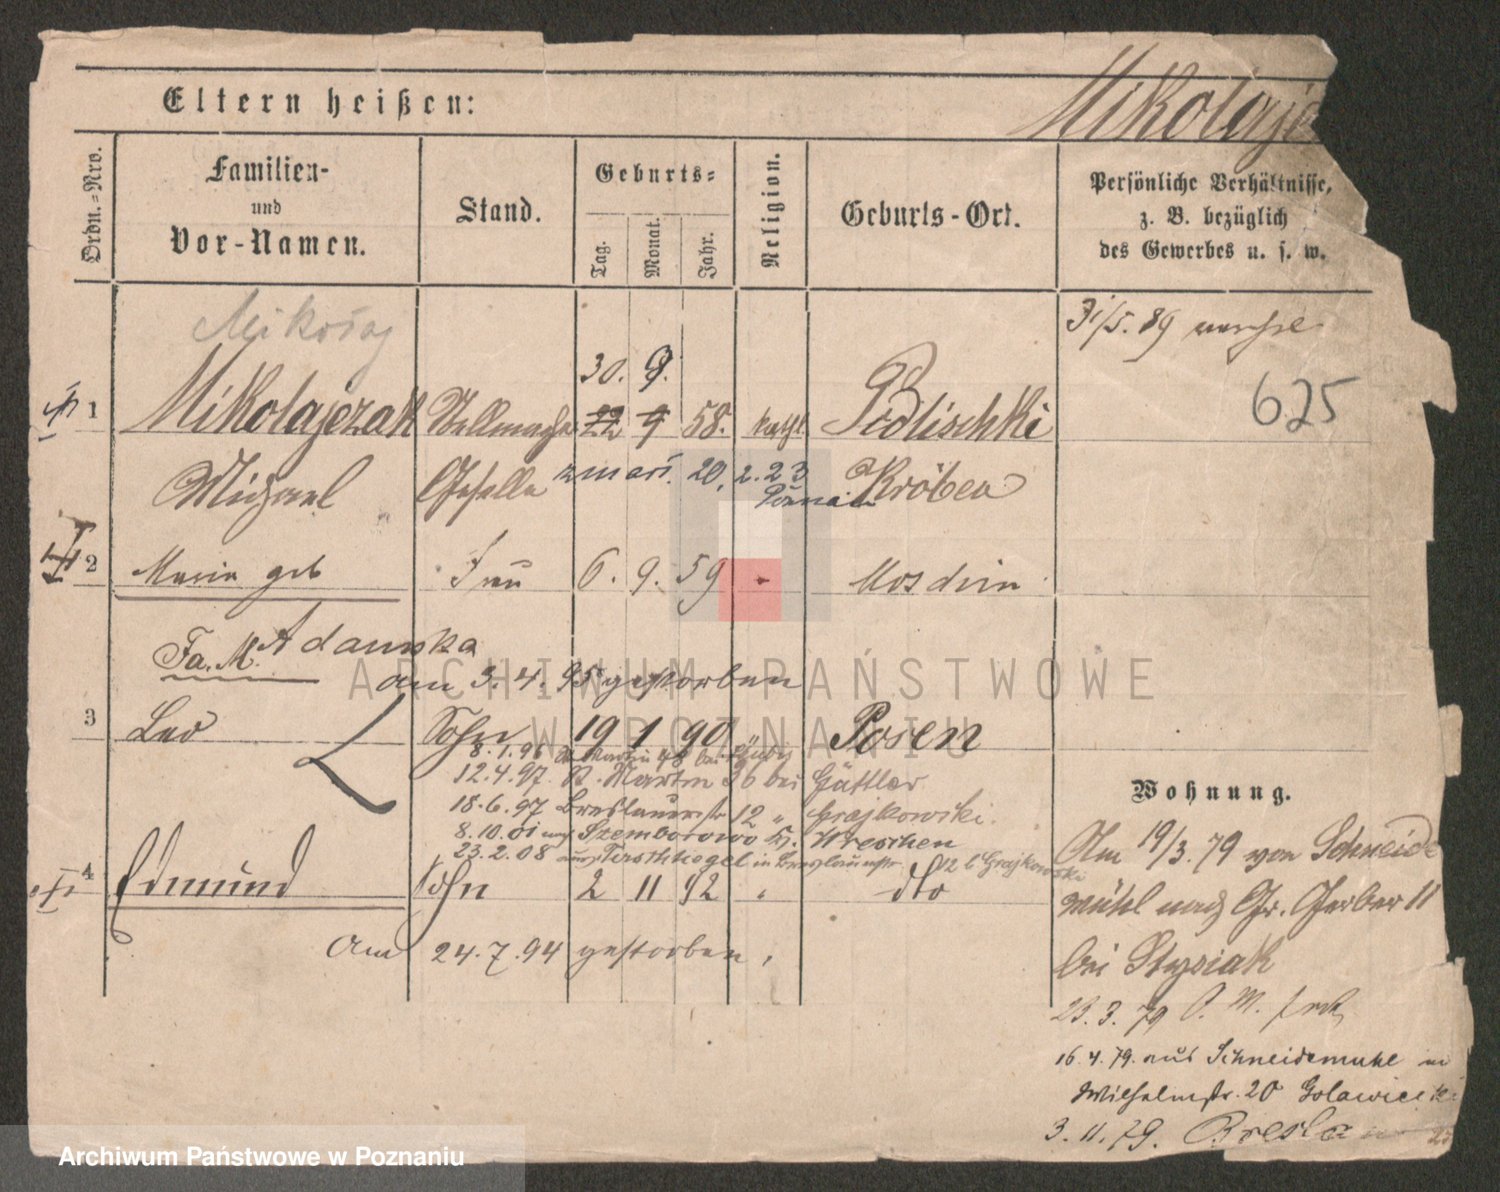 Eltern heißen:
Mikolaje
Ordn.=Nro.
Familien-
und
Vor-Namen.
Stand.
Geburts=
Tag.
Monat.
Jahr.
Religion.
Geburts-Ort.
Persönliche Verhältnisse,
z. B. bezüglich
des Gewerbes u. s. w.
31/5. 89
Mikołaj
30. 9.
625
1 Mikolajczak Stellmacher 22 9 58. kath. Podlischki
Michael Geselle zmarł. 20. 2. 23 Kröben
Poznań
2 Marie geb Frau 6. 9. 59 Moschin
Fa. M. Adamska
am 3. 4. 95 gestorben
3 Leo Sohn 19 1 90 Posen
8.1.96 St. Martin 48 bei
12.4.97. St. Martin 36 bei Gättler
18.6.97 Breslauerstr 12 " Grajkowski.
8.10.01 nach Szemborowo Kr. Wreschen
23.2.08 aus Tirschtiegel in Breslauerstr 12 b Grajkowski
4 Edmund Sohn 2 11 92 " dto
am 24.7.94 gestorben.
Wohnung.
Am 19/3. 79 von Schneide
mühl nach Gr. Gerber 11
bei Stysiak
23. 3. 79 P. M.
16.4.79. aus Schneidemühl in
Wilhelmstr. 20
3. 11. 79. Breslau
ARCHIWUM PAŃSTWOWE
W POZNANIU
Archiwum Państwowe w Poznaniu